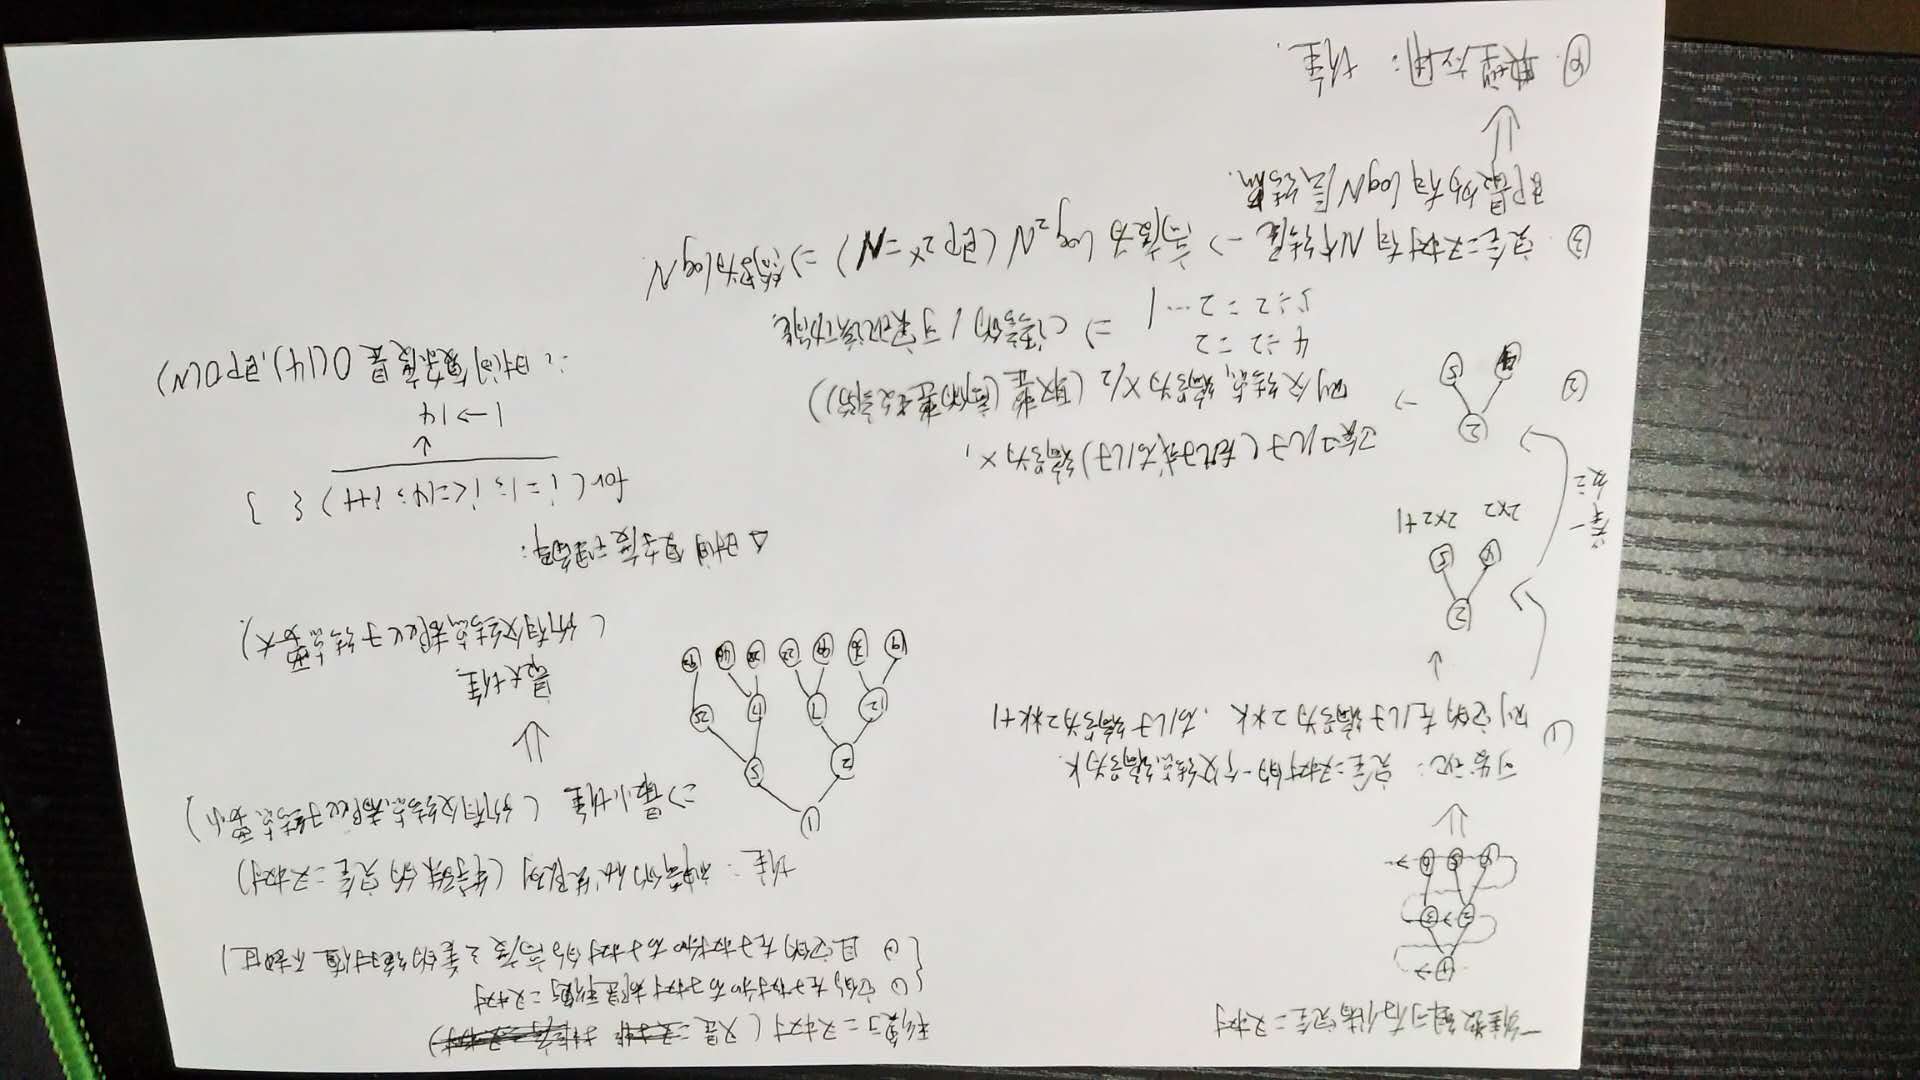 一维数组可存储完全二叉树
1
2 3
4 5 6
可发现：完全二叉树的一个父结点编号为k.
① 则它的左儿子编号为2*k，右儿子编号为2*k+1
2
4 5
2×2 2×2+1
举一
反三
② 2
4 5
儿子(左儿子或右儿子)编号为x，
则父结点编号为x/2 (取整(商的整数部分))
4÷2=2
5÷2=2…1 ⇒ C语言的 / 可实现该功能.
③ 完全二叉树有N个结尾 → 高度为 log₂N (即2ˣ=N) ⇒ 简写为logN.
即最多有logN层结点.
④. 典型应用：堆.
平衡二叉树 (又是二叉排 排序二叉树)
① 它的左子树和右子树都是平衡二叉树
② 且它的左子树和右子树的高度之差的绝对值不超过1
堆：神奇的优先队列 (特殊的完全二叉树)
⇒ 最小堆 (所有父结点都比子结点要小)
1
2 5
12 7 17 25
19 36 99 22 28 46 92
最大堆.
(所有父结点都比子结点要大).
△ 时间复杂度理解：
for( i=1; i<=14; i++ ) { }
1→14
∴ 时间复杂度是O(14),即O(N)